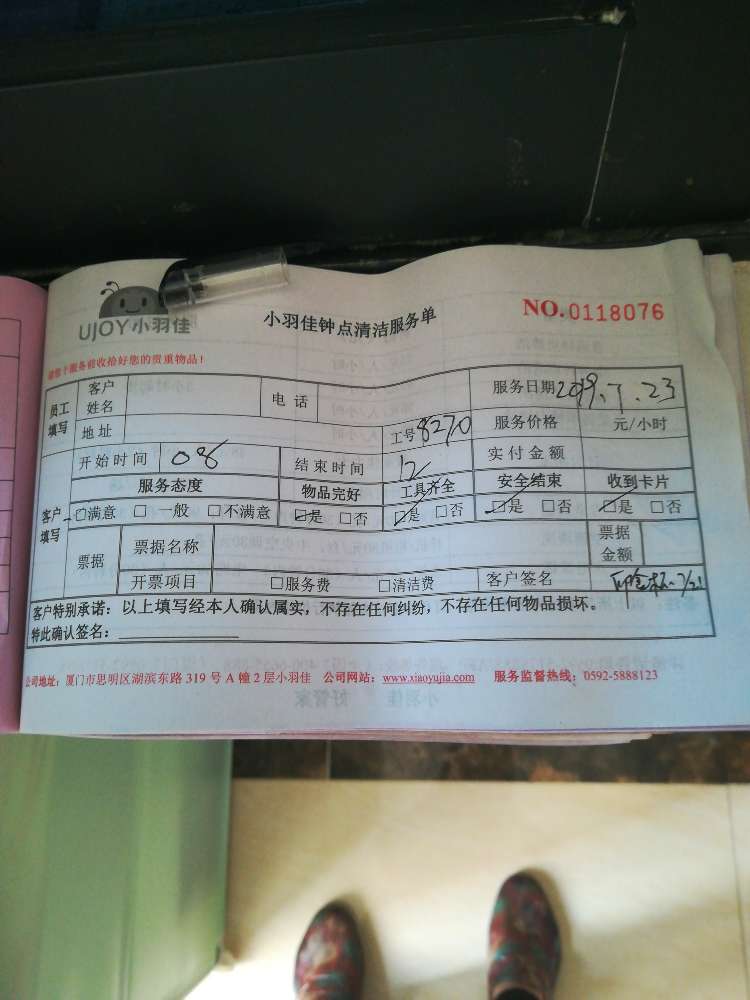 UJOY小羽佳
小羽佳钟点清洁服务单
NO.0118076
请您于服务前收拾好您的贵重物品！
员工填写 客户姓名 电 话 服务日期 2019.7.23
地址 工号 8270 服务价格 元/小时
开始时间 08 结束时间 12 实付金额
客户填写 服务态度 物品完好 工具齐全 安全结束 收到卡片
□满意 □一般 □不满意 □是 □否 □是 □否 □是 □否 □是 □否
票据 票据名称 票据金额
开票项目 □服务费 □清洁费 客户签名
客户特别承诺：以上填写经本人确认属实，不存在任何纠纷，不存在任何物品损坏。
特此确认签名：
公司地址：厦门市思明区湖滨东路 319 号 A 幢 2 层小羽佳 公司网站：www.xiaoyujia.com 服务监督热线：0592-5888123